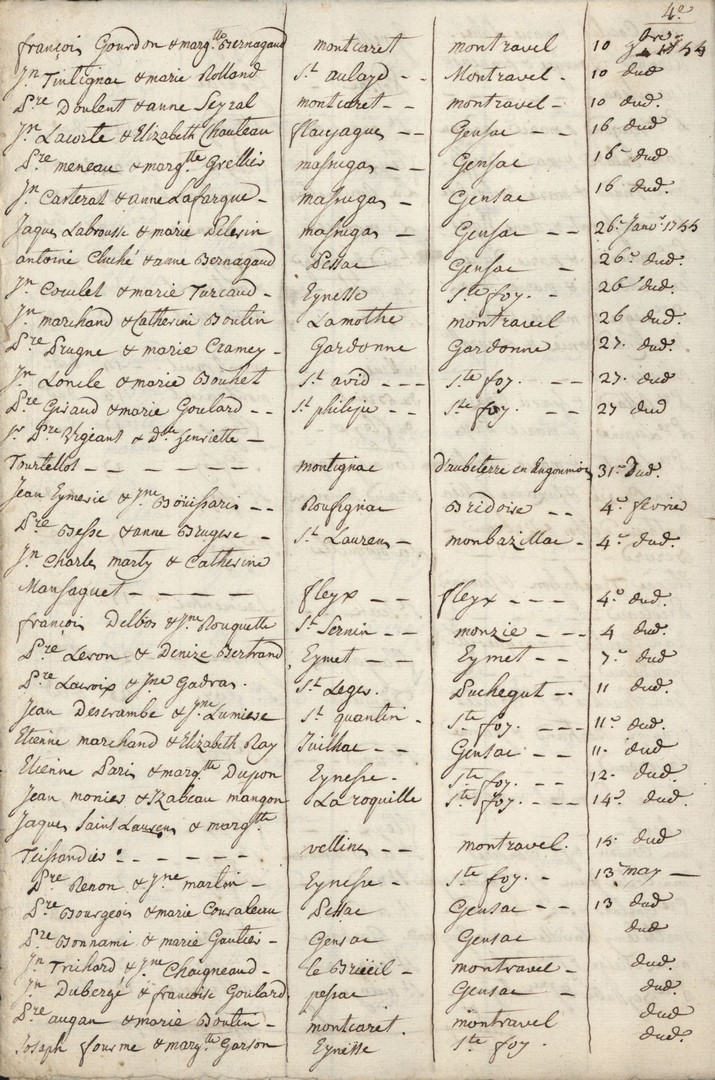 4e
françois Gourdon & margtte Bernagaud montcaret montravel 10
Jn Tintignac & marie Rolland St aulayd - - Montravel - 10 dud
Pre Doulent & anne Seyral montcaret - - montravel - 10 dud.
Jn Lacoste & Elizabeth Chauleau flaujagues - - Gensac - - 16 dud
Pre meneau & margtte Grellier masrugas - - Gensac 16 dud
Jn Casterat & anne Lafargue - masrugas - Gensac 16 dud.
Jaques Labrousse & marie Pelerin masrugas - Gensac - - 26 Janvr 1755
antoine Cluché & anne Bernagaud Pessac Gensac - 26 dud.
Jn Coculet & marie Turcaud - Eynesse Ste foy. - 26 dud.
Jn marchand & Catherine Boutin Lamothe montravel 26 dud.
Pre Prugne & marie Cramey - Gardonne Gardonne 27. dud.
Jn Loncle & marie Bouhet St avid - - - Ste foy. - - 27. dud.
Pre Giraud & marie Goulard - - St philipe - - Ste foy. - - 27 dud
Sr Pre & Dlle henriette -
Tourtellot - - - - - - montignac D'aubeterre en Engoumois 31 Dud.
Jean Eymerie & Jne Bouissaris - - Roufignac Bridoise - - 4e fevrier
Pre Besse & anne Brugere - St Laurens - monbazillac - 4e dud.
Jn Charles marty & Catherine
Mansaguet - - - - - fleyx - - fleyx - - - 4e dud.
françois Delbos & Jne Rouquette St Sernin - - monzie - - - 4 dud.
Pre Leson & Denize Bertrand Eymet - - Eymet - - 7e dud
Pre Lacroix & Jne Gadras. St Leger. Puchegut - - 11 dud.
Jean Descrambe & Jne Lumiese St quantin - Ste foy. - - - 11e dud.
Etienne marchand & Elizabeth Ray Juilhac - - Gensac - - 11. dud
Etienne Paris & margtte Dupon Eynesse - Ste foy. - - 12. dud.
Jean monier & Izabeau mangon La roquille Ste foy. - - - 14e dud.
Jaques Saint Laurens & margtte
Teissandier - - - - - - vellines - - montravel. 15. dud
Pre Renon & Jne martin - Eynesse - Ste foy. - 13 may -
Pre Bourgeois & marie Consaleau Pessac Gensac - - 13 dud
Pre Bonnami & marie Gautier - Gensac Gensac dud
Jn Trichard & Jne Chaigneaud - le Briieil - montravel - dud.
Jn Dubergé & françoise Goulard pessac Gensac - dud.
Pre augan & marie Boutin - montcaret. montravel dud
Joseph fourme & margtte Garson Eynesse Ste foy. dud.